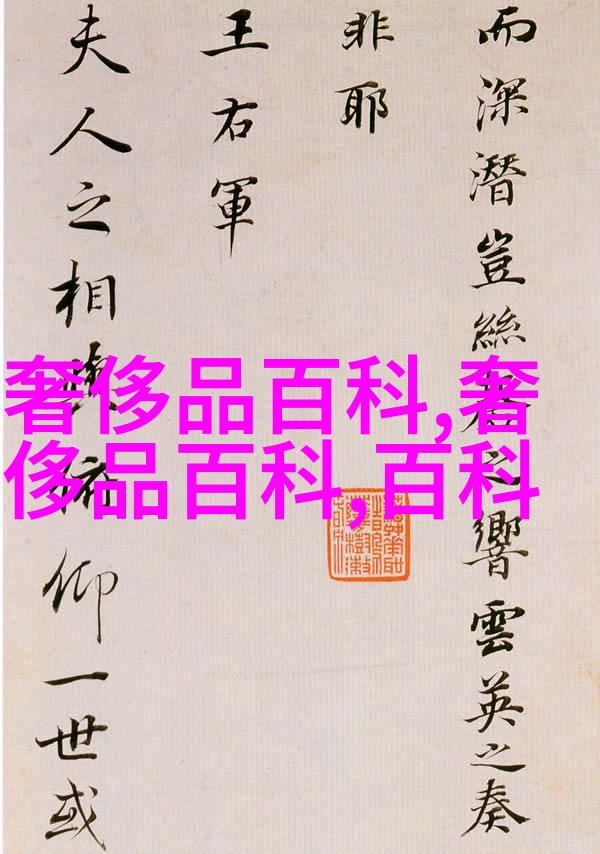 而深潛豈絲之響雲英之奏
非耶
王右軍
夫人之相與俯仰一世或
奢侈品百科,奢
侈品百科,百科